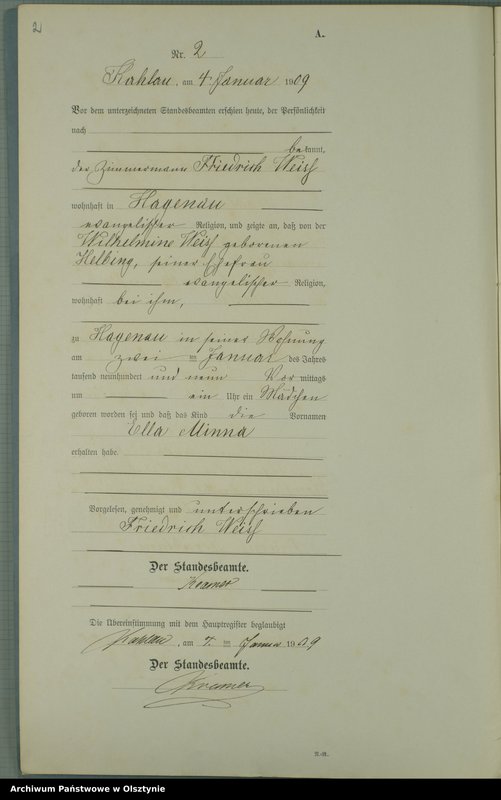 2
A.
Nr. 2
Kahlau, am 4 Januar 1909
Vor dem unterzeichneten Standesbeamten erschien heute, der Persönlichkeit
nach
bekannt,
der Zimmermann Friedrich Weiß
wohnhaft in Hagenau
evangelischer Religion, und zeigte an, daß von der
Wilhelmine Weiß geborenen
Helbing, seiner Ehefrau
evangelischer Religion,
wohnhaft bei ihm,
zu Hagenau in seiner Wohnung
am zwei im Januar des Jahres
tausend neunhundert und neun Vor mittags
um ein Uhr ein Mädchen
geboren worden sei und daß das Kind die Vornamen
Ella Minna
erhalten habe.
Vorgelesen, genehmigt und unterschrieben
Friedrich Weiß
Der Standesbeamte.
Kramer
Die Übereinstimmung mit dem Hauptregister beglaubigt
Kahlau, am 4. im Januar 1909
Der Standesbeamte.
Kramer
Archiwum Państwowe w Olsztynie